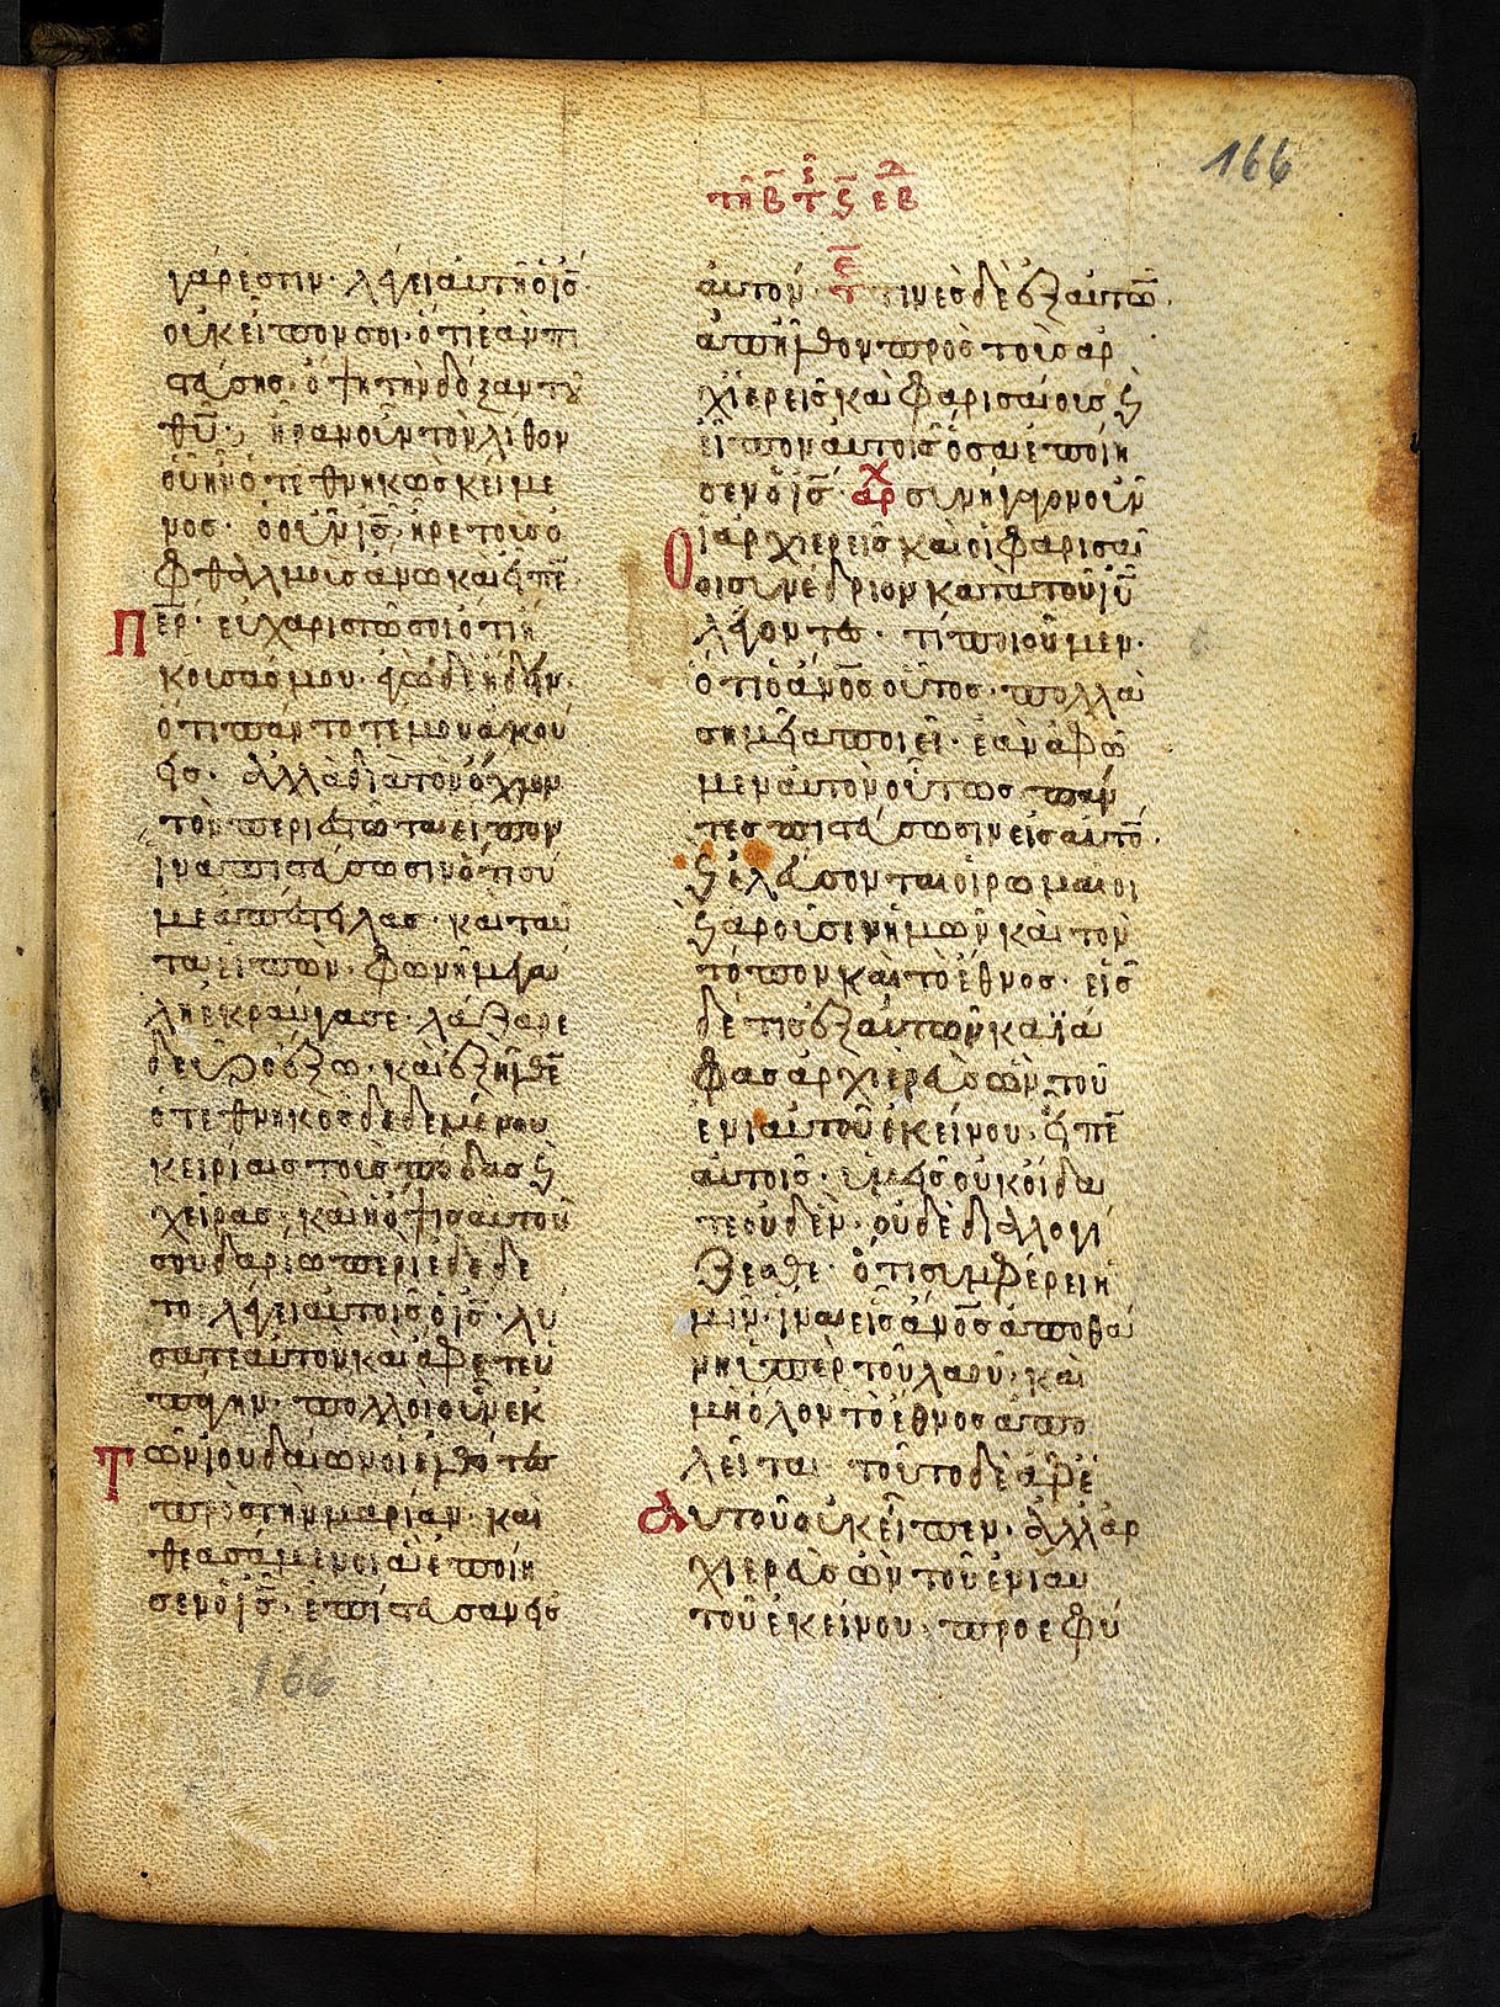 166
τῆ β̅ τ ς ε β
γάρ ἐστιν· λέγει αὐτῆ ὁ ι̅ς̅·
οὐκ εἶπόν σοι· ὅτι ἐὰν πι
στεύσης· ὄψη τὴν δόξαν του
θ̅υ̅· ἦραν οὖν τὸν λίθον
οὗ ἦν ὁ τεθνηκὼς κείμε
νος· ὁ οὖν ι̅ς̅ ἦρε τοὺς ὀ
φθαλμοὺς ἄνω καὶ εἶπε̅·
Π̅ε̅ρ̅· εὐχαριστῶ σοι ὅτι ἤ
κουσάς μου· ἐγὼ δὲ ἤδειν·
ὅτι πάντοτέ μου ἀκού
εις· ἀλλὰ διὰ τὸν ὄχλον
τὸν περιεστῶτα εἶπον
ἵνα πιστεύσωσιν ὅτι σύ
με ἀπέστειλας· καὶ ταῦ
τα εἰπὼν· φωνῆ μεγά
λη ἐκραύγασε· λάζαρε
δεῦρο ἔξω· καὶ ἐξῆλθε̅
ὁ τεθνηκὸς δεδεμένου
κειρίαις τοὺς πόδας ϗ
χεῖρας· καὶ ἡ ὄψις αὐτοῦ
σουδαρίω περιεδέδε
το· λέγει αὐτοῖς ὁ ι̅ς̅· λύ
σατε αὐτὸν καὶ ἄφετε ὑ
πάγειν· πολλοὶ οὖν ἐκ
Τῶν ἰουδαίων οἱ ἐλθόντες
πρὸς τὴν μαρίαν· καὶ
θεασάμενοι ἃ ἐποίη
σεν ὁ ι̅ς̅· ἐπίστευσαν εἰς
αὐτόν· τε τινὲς δὲ ἐξ αὐτῶ̅·
ἀπῆλθον πρὸς τοὺς ἀρ
χιερεῖς καὶ φαρισαίους ϗ
εἶπον αὐτοῖς ὅσα ἐποίη
σεν ὁ ι̅ς̅· αρχ συνήγαγον οὖν
Οἱ ἀρχιερεῖς καὶ οἱ φαρισαῖ
οι συνέδριον κατὰ τοῦ ι̅υ̅
λέγοντες· τί ποιοῦμεν·
ὅτι ὁ ἄν̅ο̅ς οὗτος· πολλὰ
σημεῖα ποιεῖ· ἐὰν ἀφῶ
μεν αὐτὸν οὕτως πάν
τες πιστεύσωσιν εἰς αὐτό̅·
ϗ ἐλεύσονται οἱ ῥωμαῖοι
ϗ ἀροῦσιν ἡμῶν καὶ τὸν
τόπον καὶ τὸ ἔθνος· εἷς
δέ τις ἐξ αὐτῶν καϊά
φας ἀρχιερεὺς ὢν τοῦ
ἐνιαυτοῦ ἐκείνου· εἶπε̅
αὐτοῖς· ὑμεῖς οὐκ οἴδα
τε οὐδὲν· οὐδὲ διαλογί
ζεσθε· ὅτι συμφέρει ἡ
μῖν· ἵνα εἷς ἄν̅ο̅ς ἀποθά
νη ὑπὲρ τοῦ λαοῦ· καὶ
μὴ ὅλον τὸ ἔθνος ἀπό
λειται τοῦτο δὲ ἀφ' ἑ
αυτοῦ οὐκ εἶπεν· ἀλλ' ἀρ
χιερεὺς ὢν τοῦ ἐνιαυ
τοῦ ἐκείνου· προεφή
166